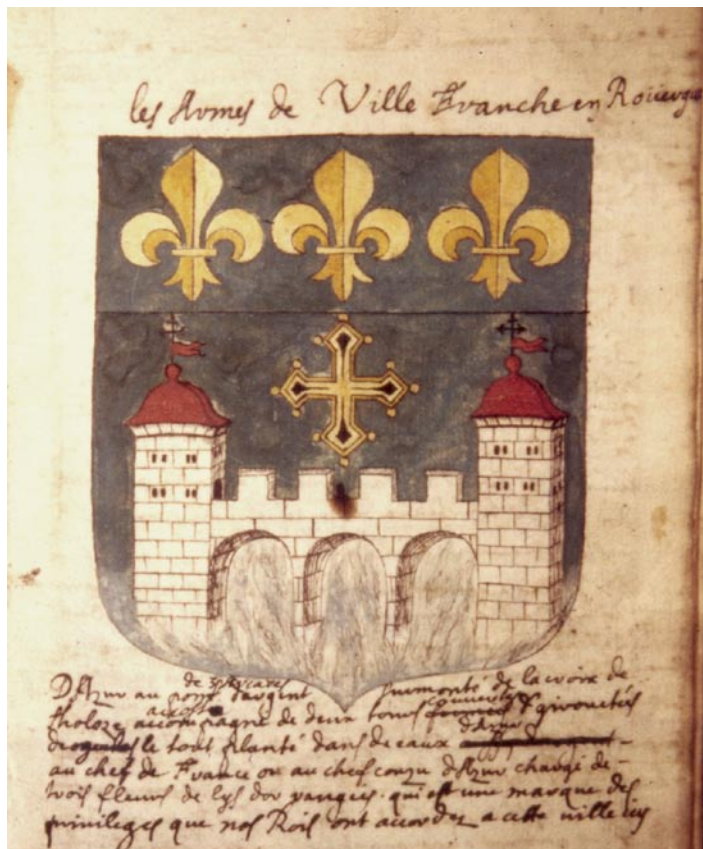 les Armes de Ville Franche en Rouergue
de 3 Arcades
D'Azur au pont d'argent surmonté de la croix de
tholoze accompagné de deux tours couvertes & girouetées
de le tout planté dans de eaux d'Azur
au chef de France ou au chef cousu d'Azur chargé de
trois fleurs de lys d'or rangées. qui est une marque des
privileges que nos Rois ont accordez a cette ville